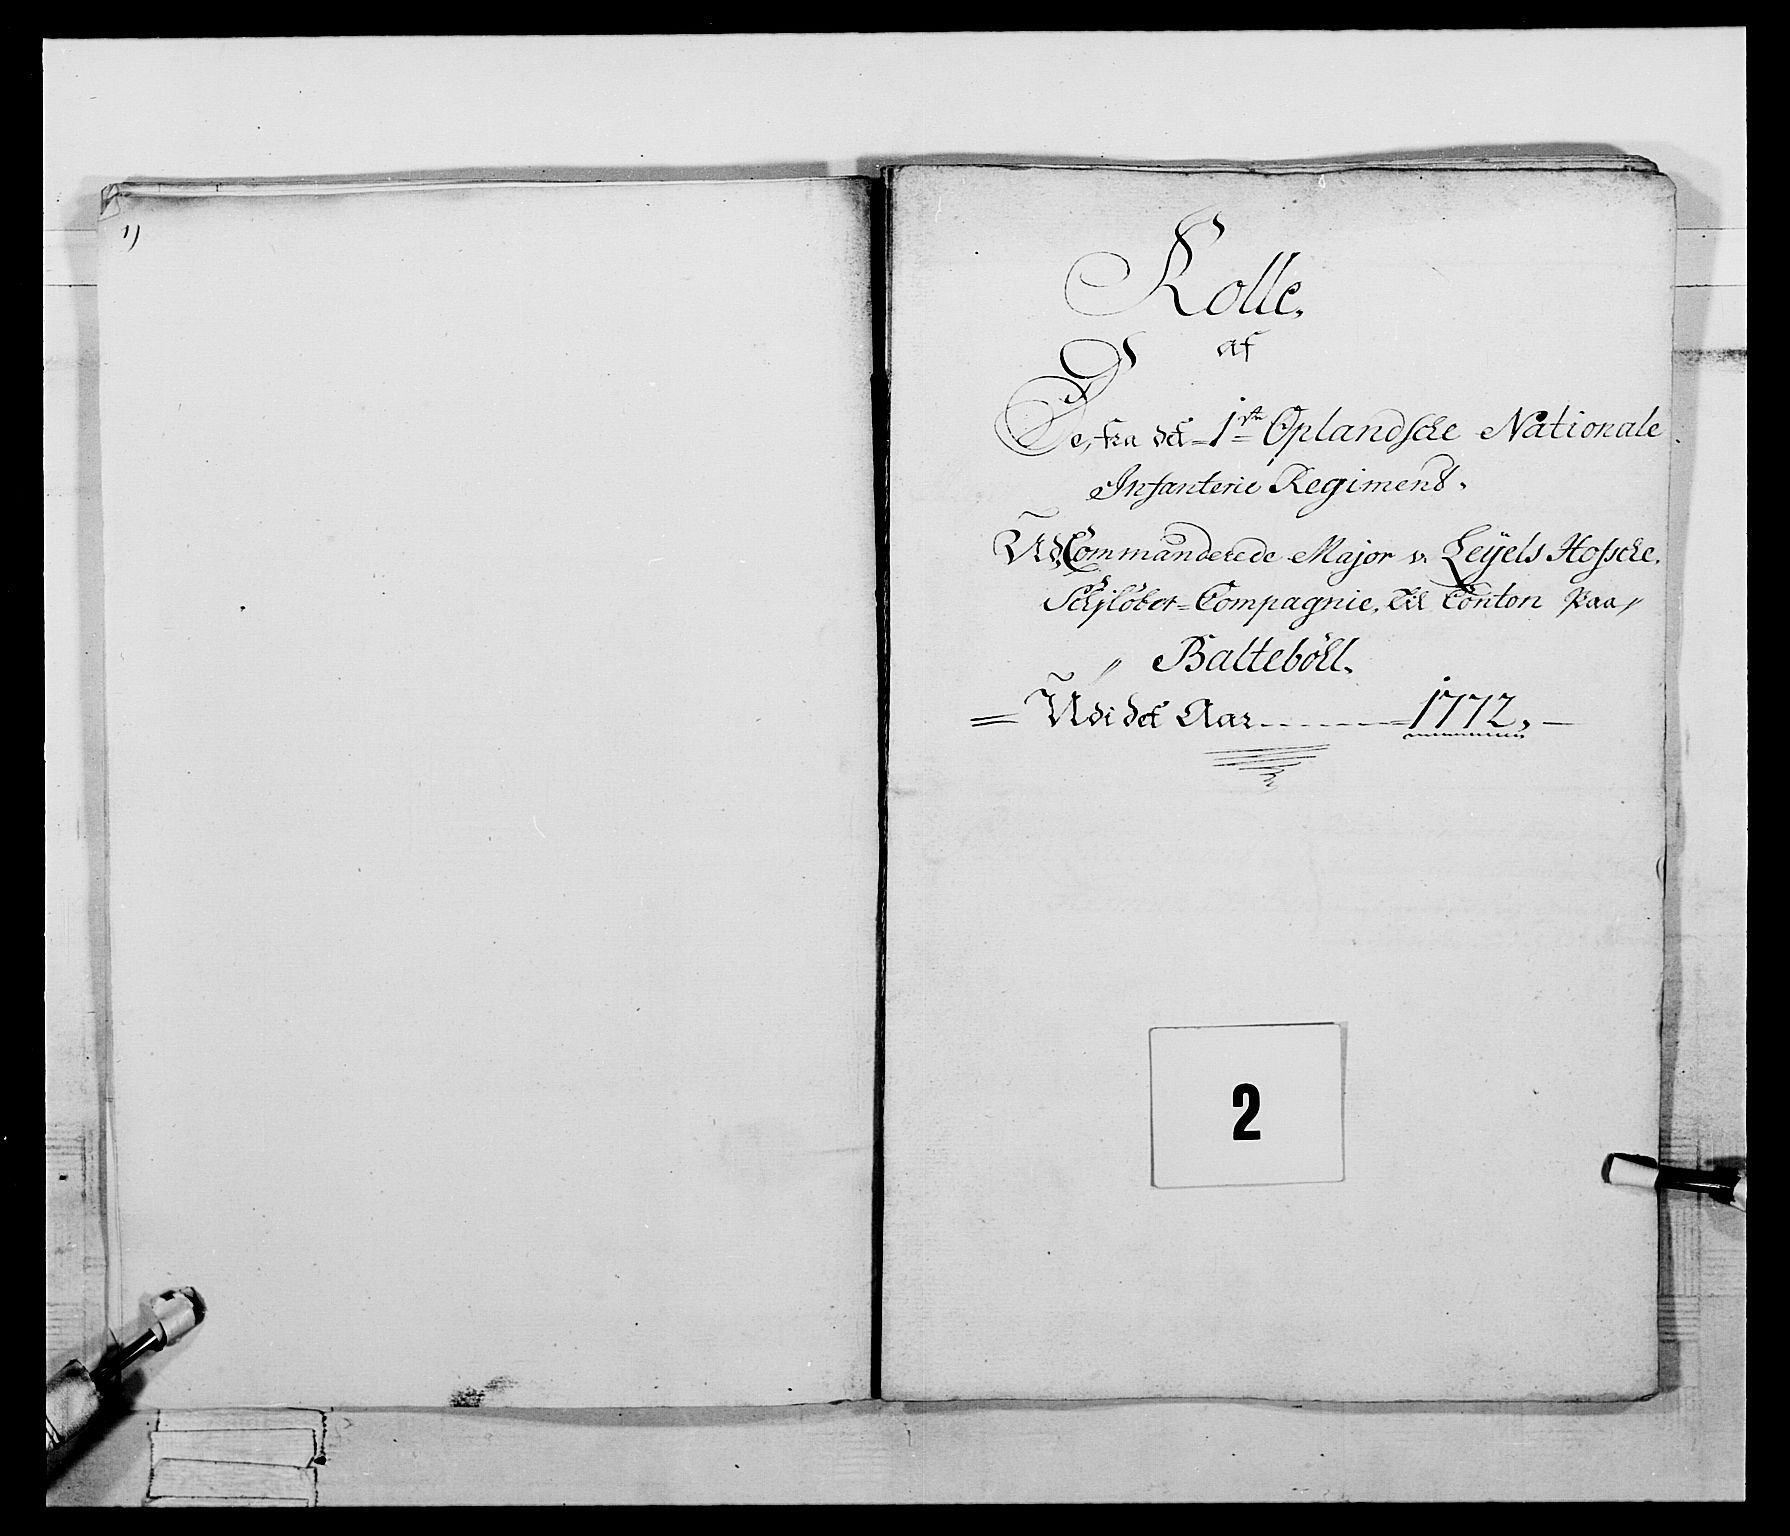 1)
Rolle.
af
De, fra det 1ste Oplandske Nationale
Infanterie Regiment.
Ud Commanderede Major v. Leÿels Hofske.
Schjløber-Compagnie, til Conton paa
Balteböll.
Udi det Aar 1772,
2